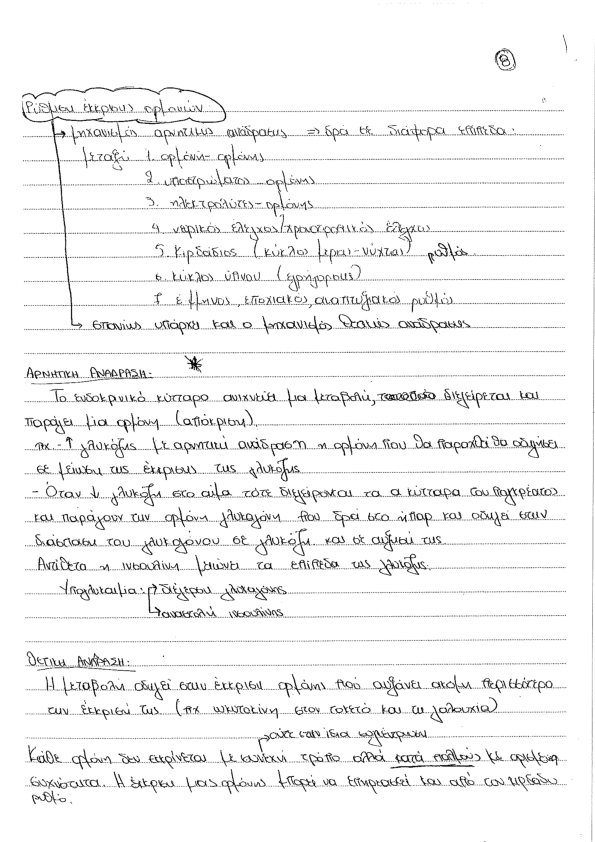 8
Ρύθμιση έκκρισης ορμονών
→ μηχανισμός αρνητικής ανάδρασης ⇒ δρα σε διάφορα επίπεδα:
μεταξύ 1. ορμόνη-ορμόνης
2. υποστρώματος-ορμόνης
3. ηλεκτρολύτες-ορμόνης
4. νευρικός έλεγχος/χρονοτροπικός έλεγχος
5. Κιρκάδιος (κύκλος μέρας-νύχτας) ρυθμός
6. κύκλος ύπνου (εγρήγορσης)
7. έμμηνος, εποχιακός, αναπτυξιακός ρυθμός
→ σπανίως υπάρχει και ο μηχανισμός θετικής ανάδρασης
ΑΡΝΗΤΙΚΗ ΑΝΑΔΡΑΣΗ: *
Το ενδοκρινικό κύτταρο ανιχνεύει μια μεταβολή, διεγείρεται και
παράγει μία ορμόνη (απόκριση).
πχ. - ↑ γλυκόζης με αρνητική ανάδραση η ορμόνη που θα παραχθεί θα οδηγήσει
σε μείωση της έκκρισης της γλυκόζης
- Όταν ↓ γλυκόζη στο αίμα τότε διεγείρονται τα α κύτταρα του παγκρέατος
και παράγουν την ορμόνη γλυκαγόνη που δρα στο ήπαρ και οδηγεί στην
διάσπαση του γλυκογόνου σε γλυκόζη και σε αύξησή της.
Αντίθετα η ινσουλίνη μειώνει τα επίπεδα της γλυκόζης.
Υπογλυκαιμία: → διέγερση γλυκαγόνης
→ αναστολή ινσουλίνης
ΘΕΤΙΚΗ ΑΝΑΔΡΑΣΗ:
Η μεταβολή οδηγεί στην έκκριση ορμόνης που αυξάνει ακόμη περισσότερο
την έκκρισή της (πχ ωκυτοκίνη στον τοκετό και τη γαλουχία)
→ ούτε στην ίδια συγκέντρωση
Κάθε ορμόνη δεν εκκρίνεται με συνεχή τρόπο αλλά κατά παλμούς με ορισμένη
συχνότητα. Η έκκριση μιας ορμόνης μπορεί να επηρεασθεί και από τον κιρκάδιο
ρυθμό.